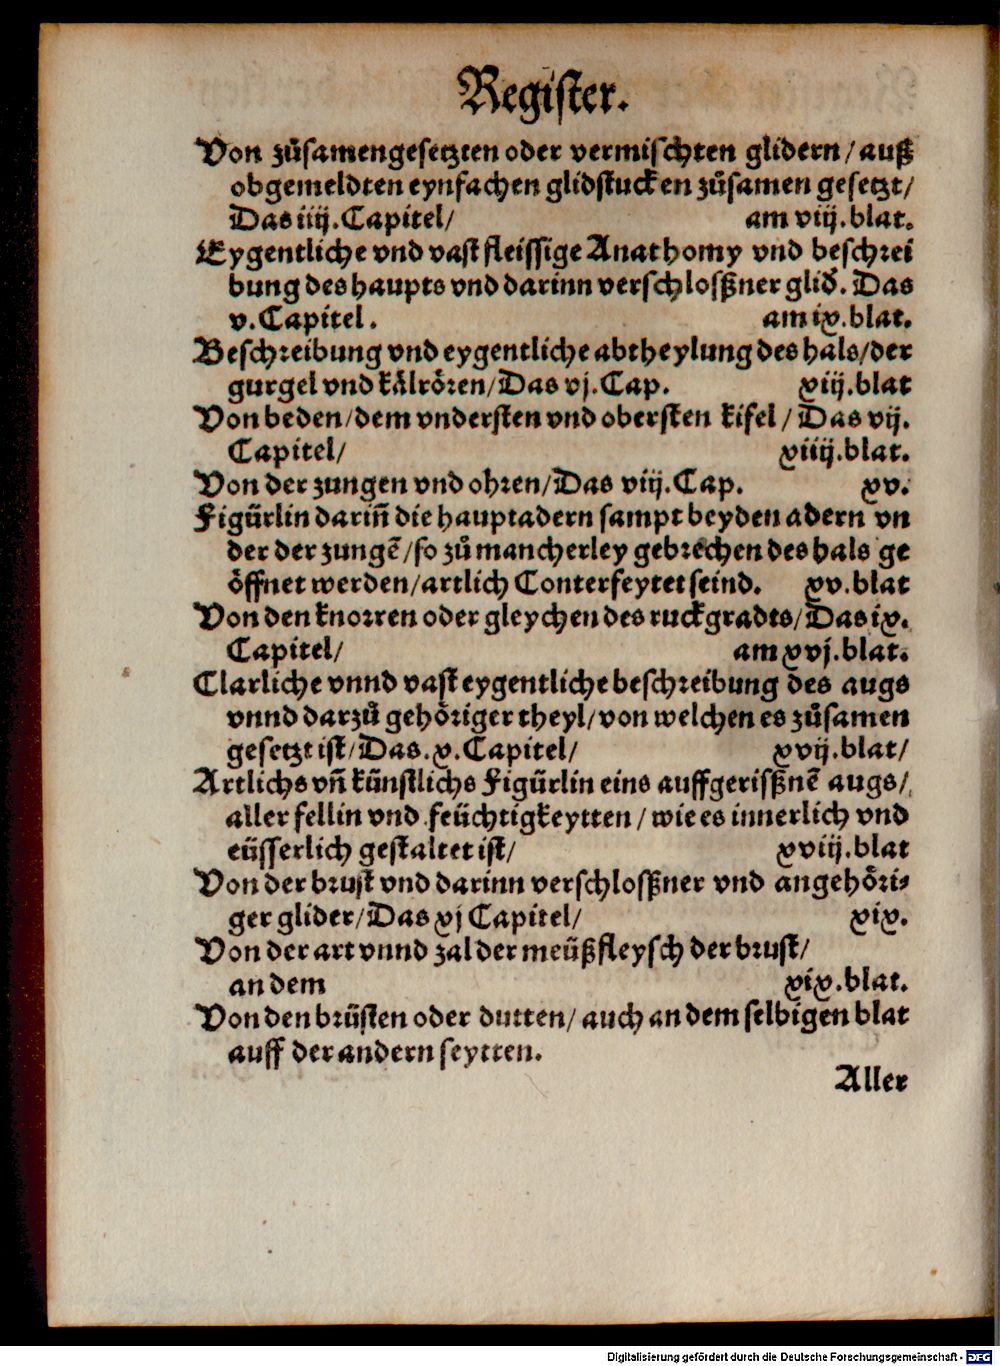 Register.
Von zůsamengesetzten oder vermischten glidern/auß
obgemeldten eynfachen glidstucken zůsamen gesetzt/
Das iiij.Capitel/ am viij.blat.
Eygentliche vnd vast fleissige Anathomy vnd beschrei
bung des haupts vnd darinn verschloßner glid̕. Das
v.Capitel. am ix.blat.
Beschreibung vnd eygentliche abtheylung des hals/der
gurgel vnd kälrören/Das vj.Cap. xiij.blat
Von beden/dem vndersten vnd obersten kifel/ Das vij.
Capitel/ xiiij.blat.
Von der zungen vnd ohren/Das viij.Cap. xv.
Figürlin dariñ die hauptadern sampt beyden adern vn
der der zungẽ/so zů mancherley gebrechen des hals ge
öffnet werden/artlich Conterfeytet seind. xv.blat
Von den knorren oder gleychen des ruckgradts/Das ix.
Capitel/ am xvj.blat.
Clarliche vnnd vast eygentliche beschreibung des augs
vnnd darzů gehöriger theyl/von welchen es zůsamen
gesetzt ist/Das.x.Capitel/ xvij.blat/
Artlichs vñ künstlichs Figürlin eins auffgerißnẽ augs/
aller fellin vnd feüchtigkeytten/wie es innerlich vnd
eüsserlich gestaltet ist/ xviij.blat
Von der brust vnd darinn verschloßner vnd angehöri⸗
ger glider/Das xj Capitel/ xix.
Von der art vnnd zal der meüßfleysch der brust/
an dem xix.blat.
Von den brüsten oder dutten/auch an dem selbigen blat
auff der andern seytten.
Aller
Digitalisierung gefördert durch die Deutsche Forschungsgemeinschaft - DFG